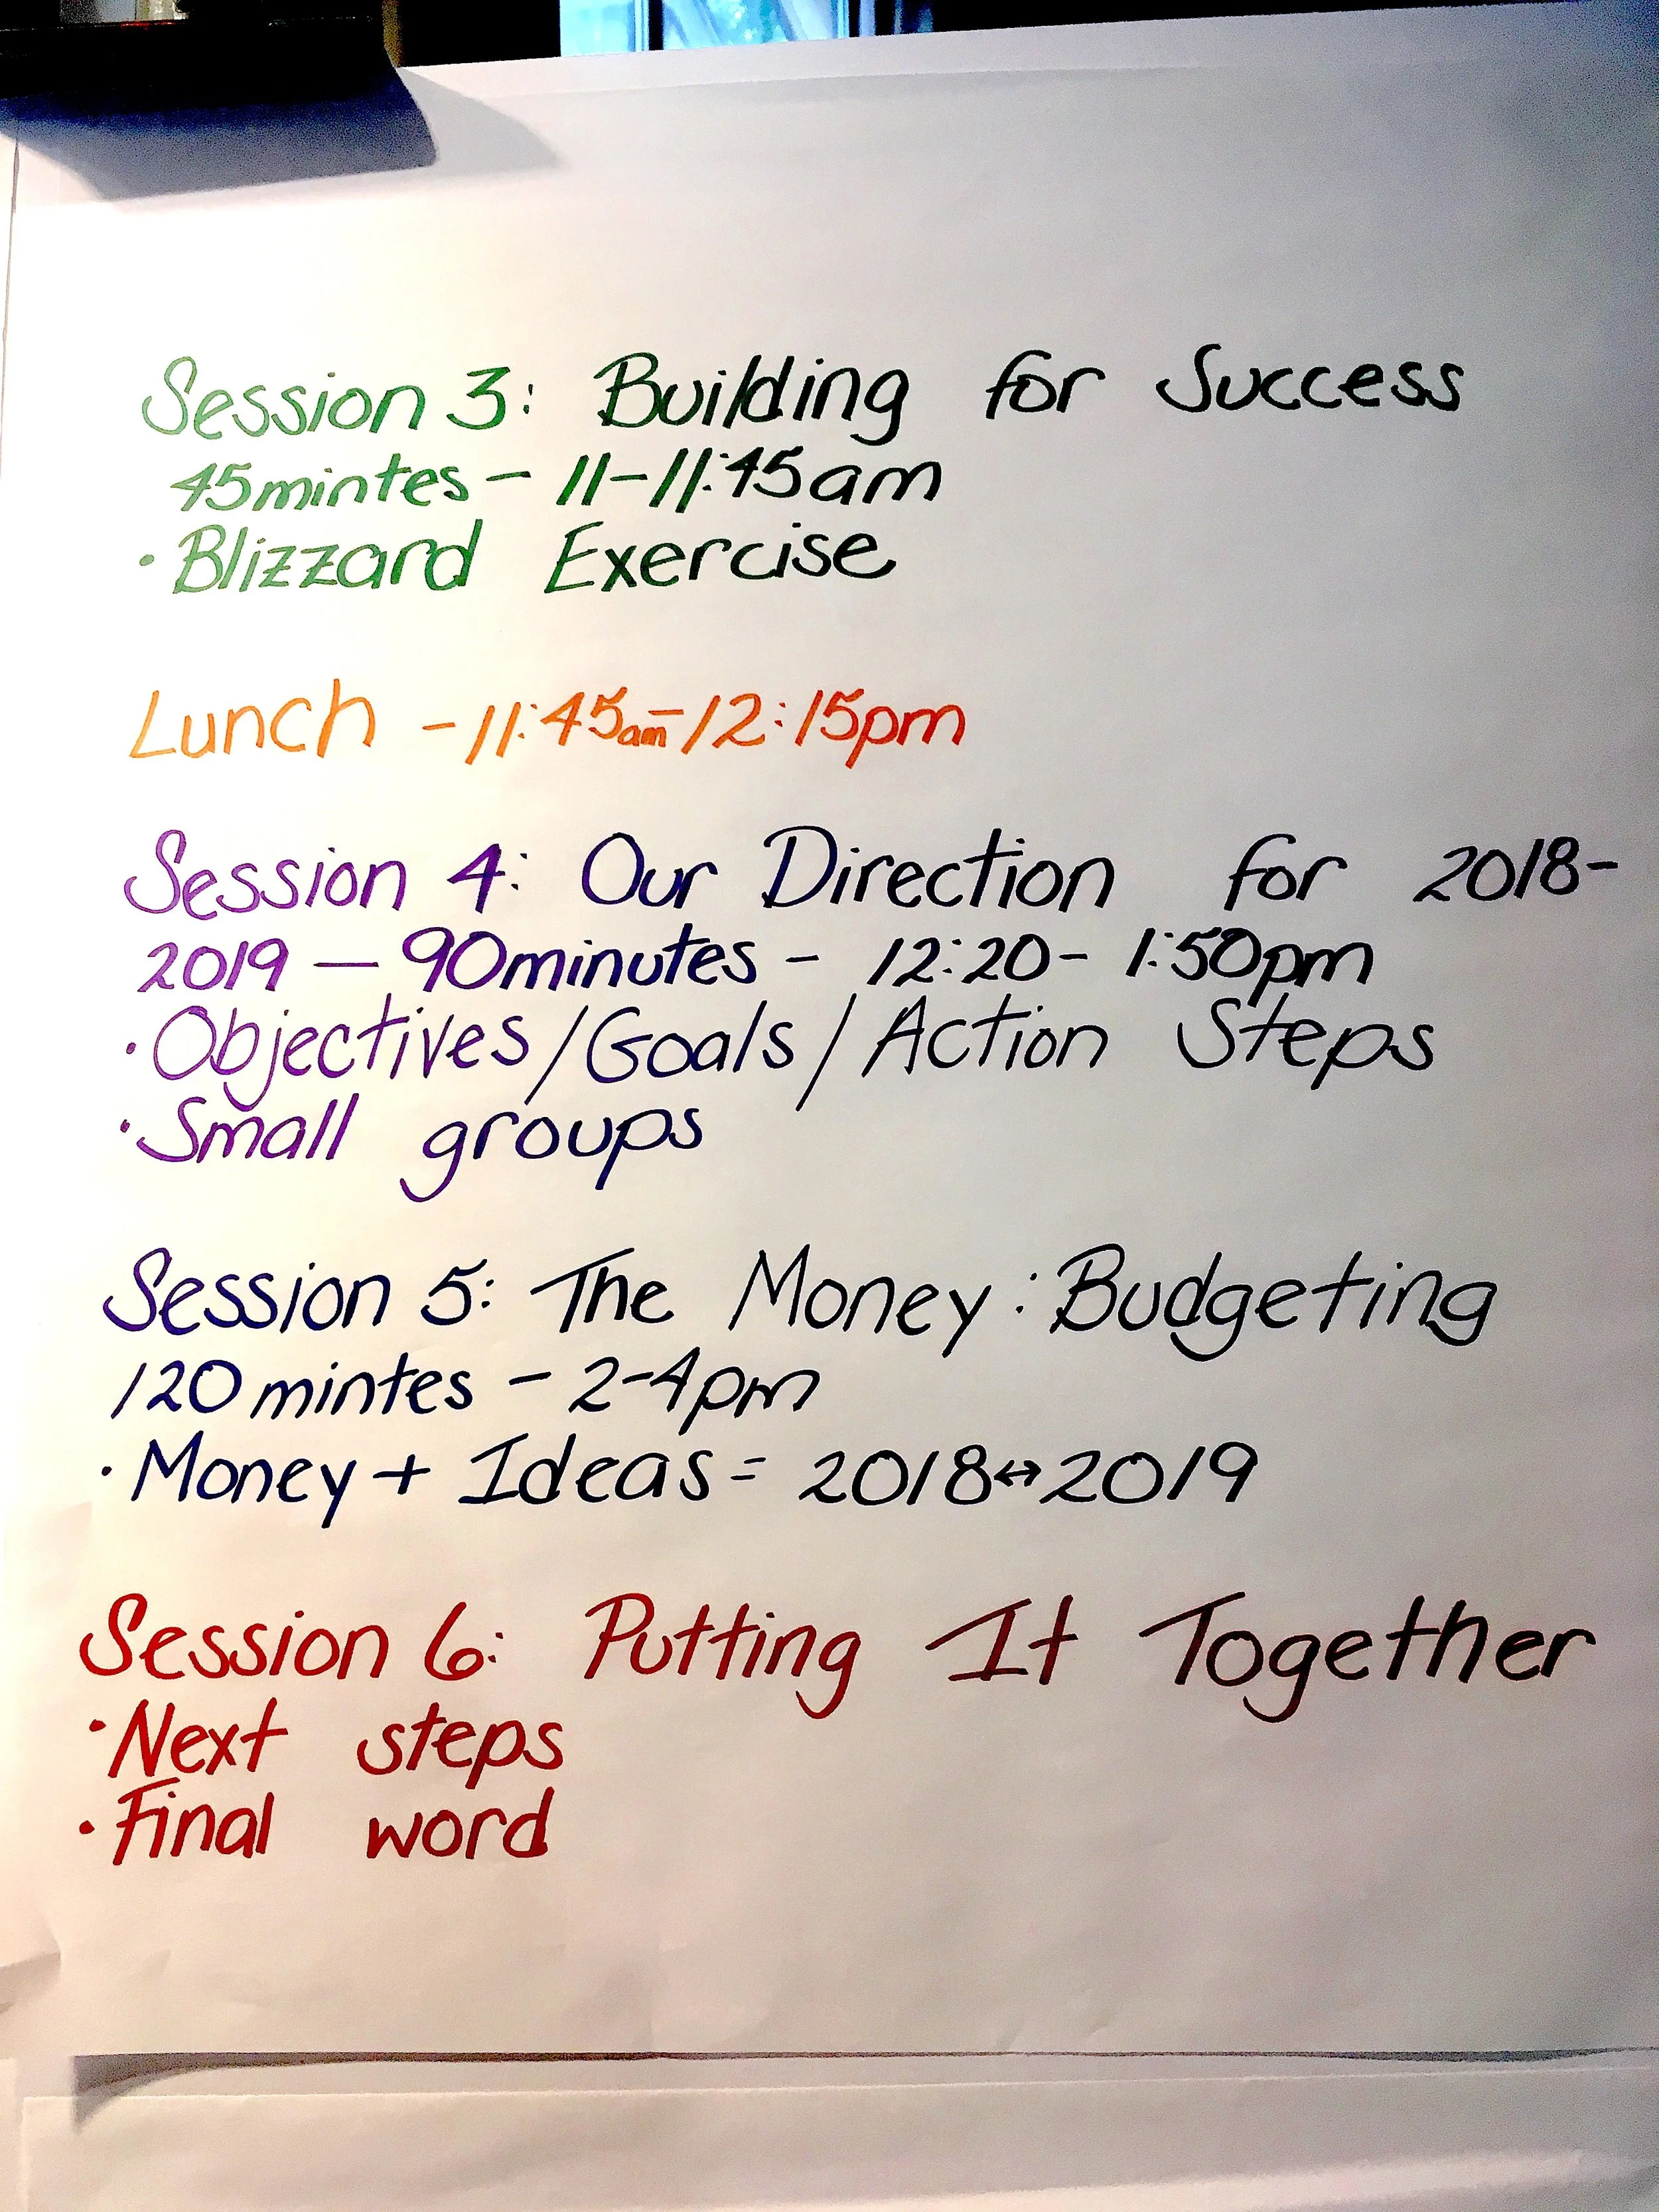 Session 3: Building for Success
45mintes - 11-11:45am
· Blizzard Exercise
Lunch - 11:45am-12:15pm
Session 4: Our Direction for 2018-
2019 — 90minutes - 12:20- 1:50pm
· Objectives/Goals/Action Steps
· Small groups
Session 5: The Money: Budgeting
120 mintes - 2-4pm
· Money + Ideas = 2018↔2019
Session 6: Putting It Together
· Next steps
· Final word